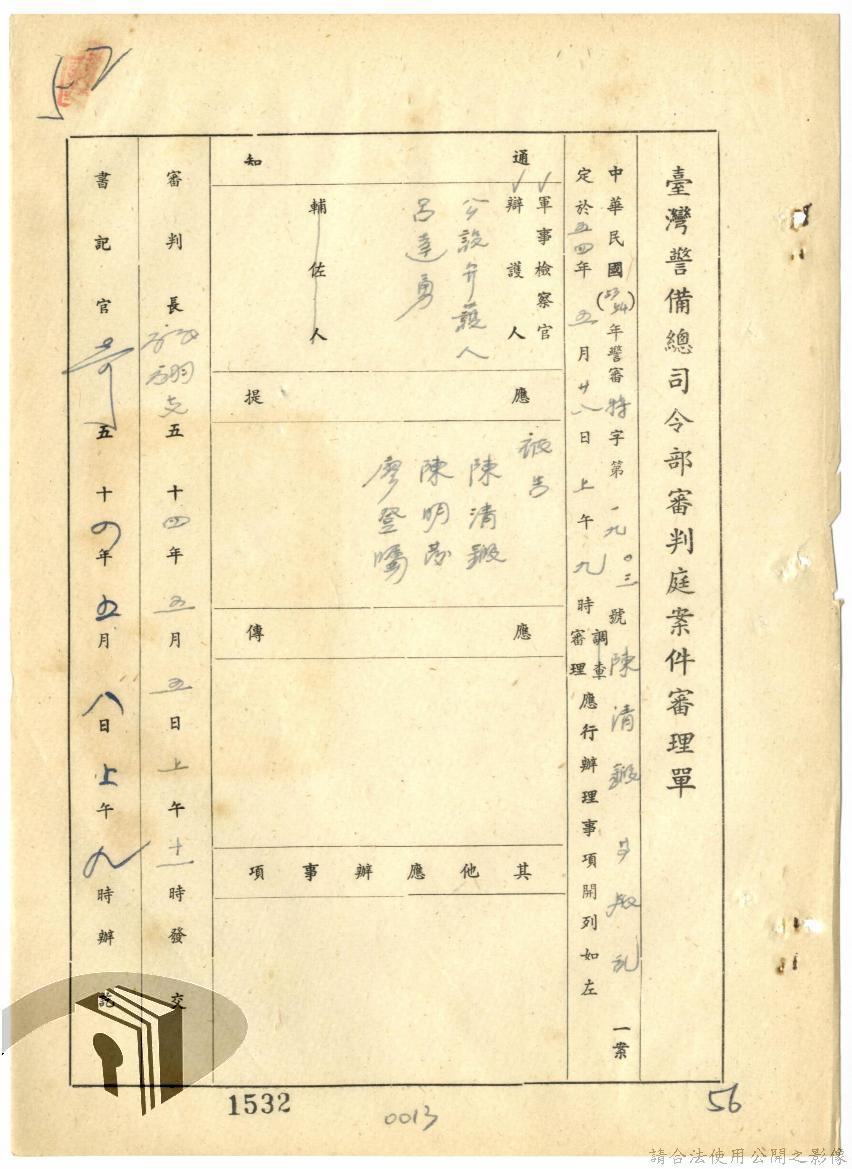 臺灣警備總司令部審判庭案件審理單
中華民國(53 54)年警審特字第一九〇三號陳清鍛等叛乱一案
定於五四年五月廿八日上午九時調查審理應行辦理事項開列如左
通知
軍事檢察官
辯護人
公設弁護人
呂達勇
輔佐人
應提
被告
陳清鍛
陳明
廖登
應傳
其他應辦事項
審判長 五十四年五月五日上午十一時發交
書記官 五十四年五月八日上午九時辦訖
57
1532
0013
56
請合法使用公開之影像